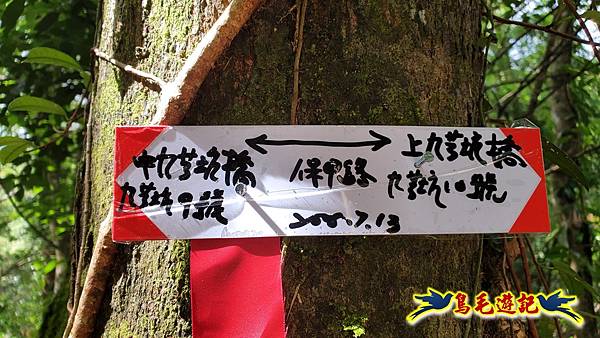 中九芎坑橋
九芎坑9號
保甲路
上九芎坑橋
九芎坑10號
2020.7.13
鳥毛遊記